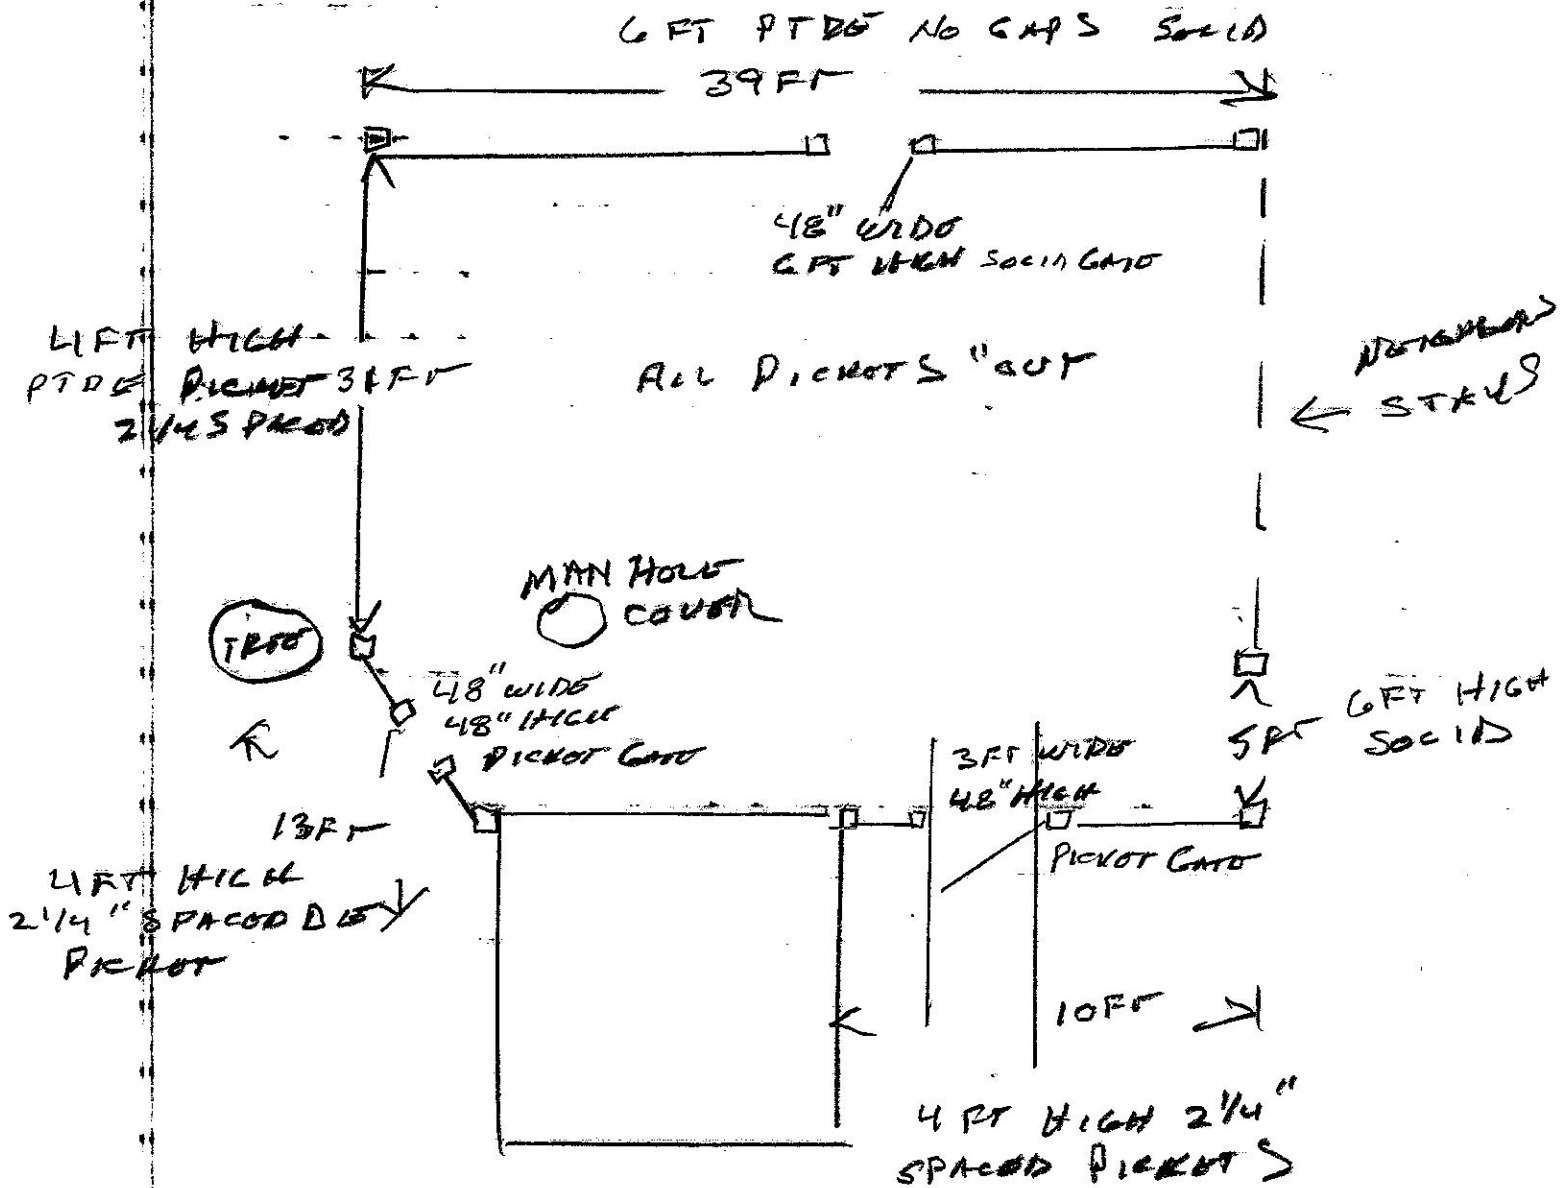 6 FT PTDE NO GAPS SOLID
39 FT
48" WIDE
6 FT HIGH SOLID GATE
4 FT HIGH
PTDE PICKET 31 FT
2 1/4 SPACED
ALL PICKETS "OUT
NEIGHBORS
STAYS
MAN HOLE
COVER
TREE
48" WIDE
48" HIGH
PICKET GATE
6 FT HIGH
5 FT SOLID
3 FT WIDE
48" HIGH
PICKET GATE
13 FT
4 FT HIGH
2 1/4" SPACED DE
PICKET
10 FT
4 FT HIGH 2 1/4"
SPACED PICKETS